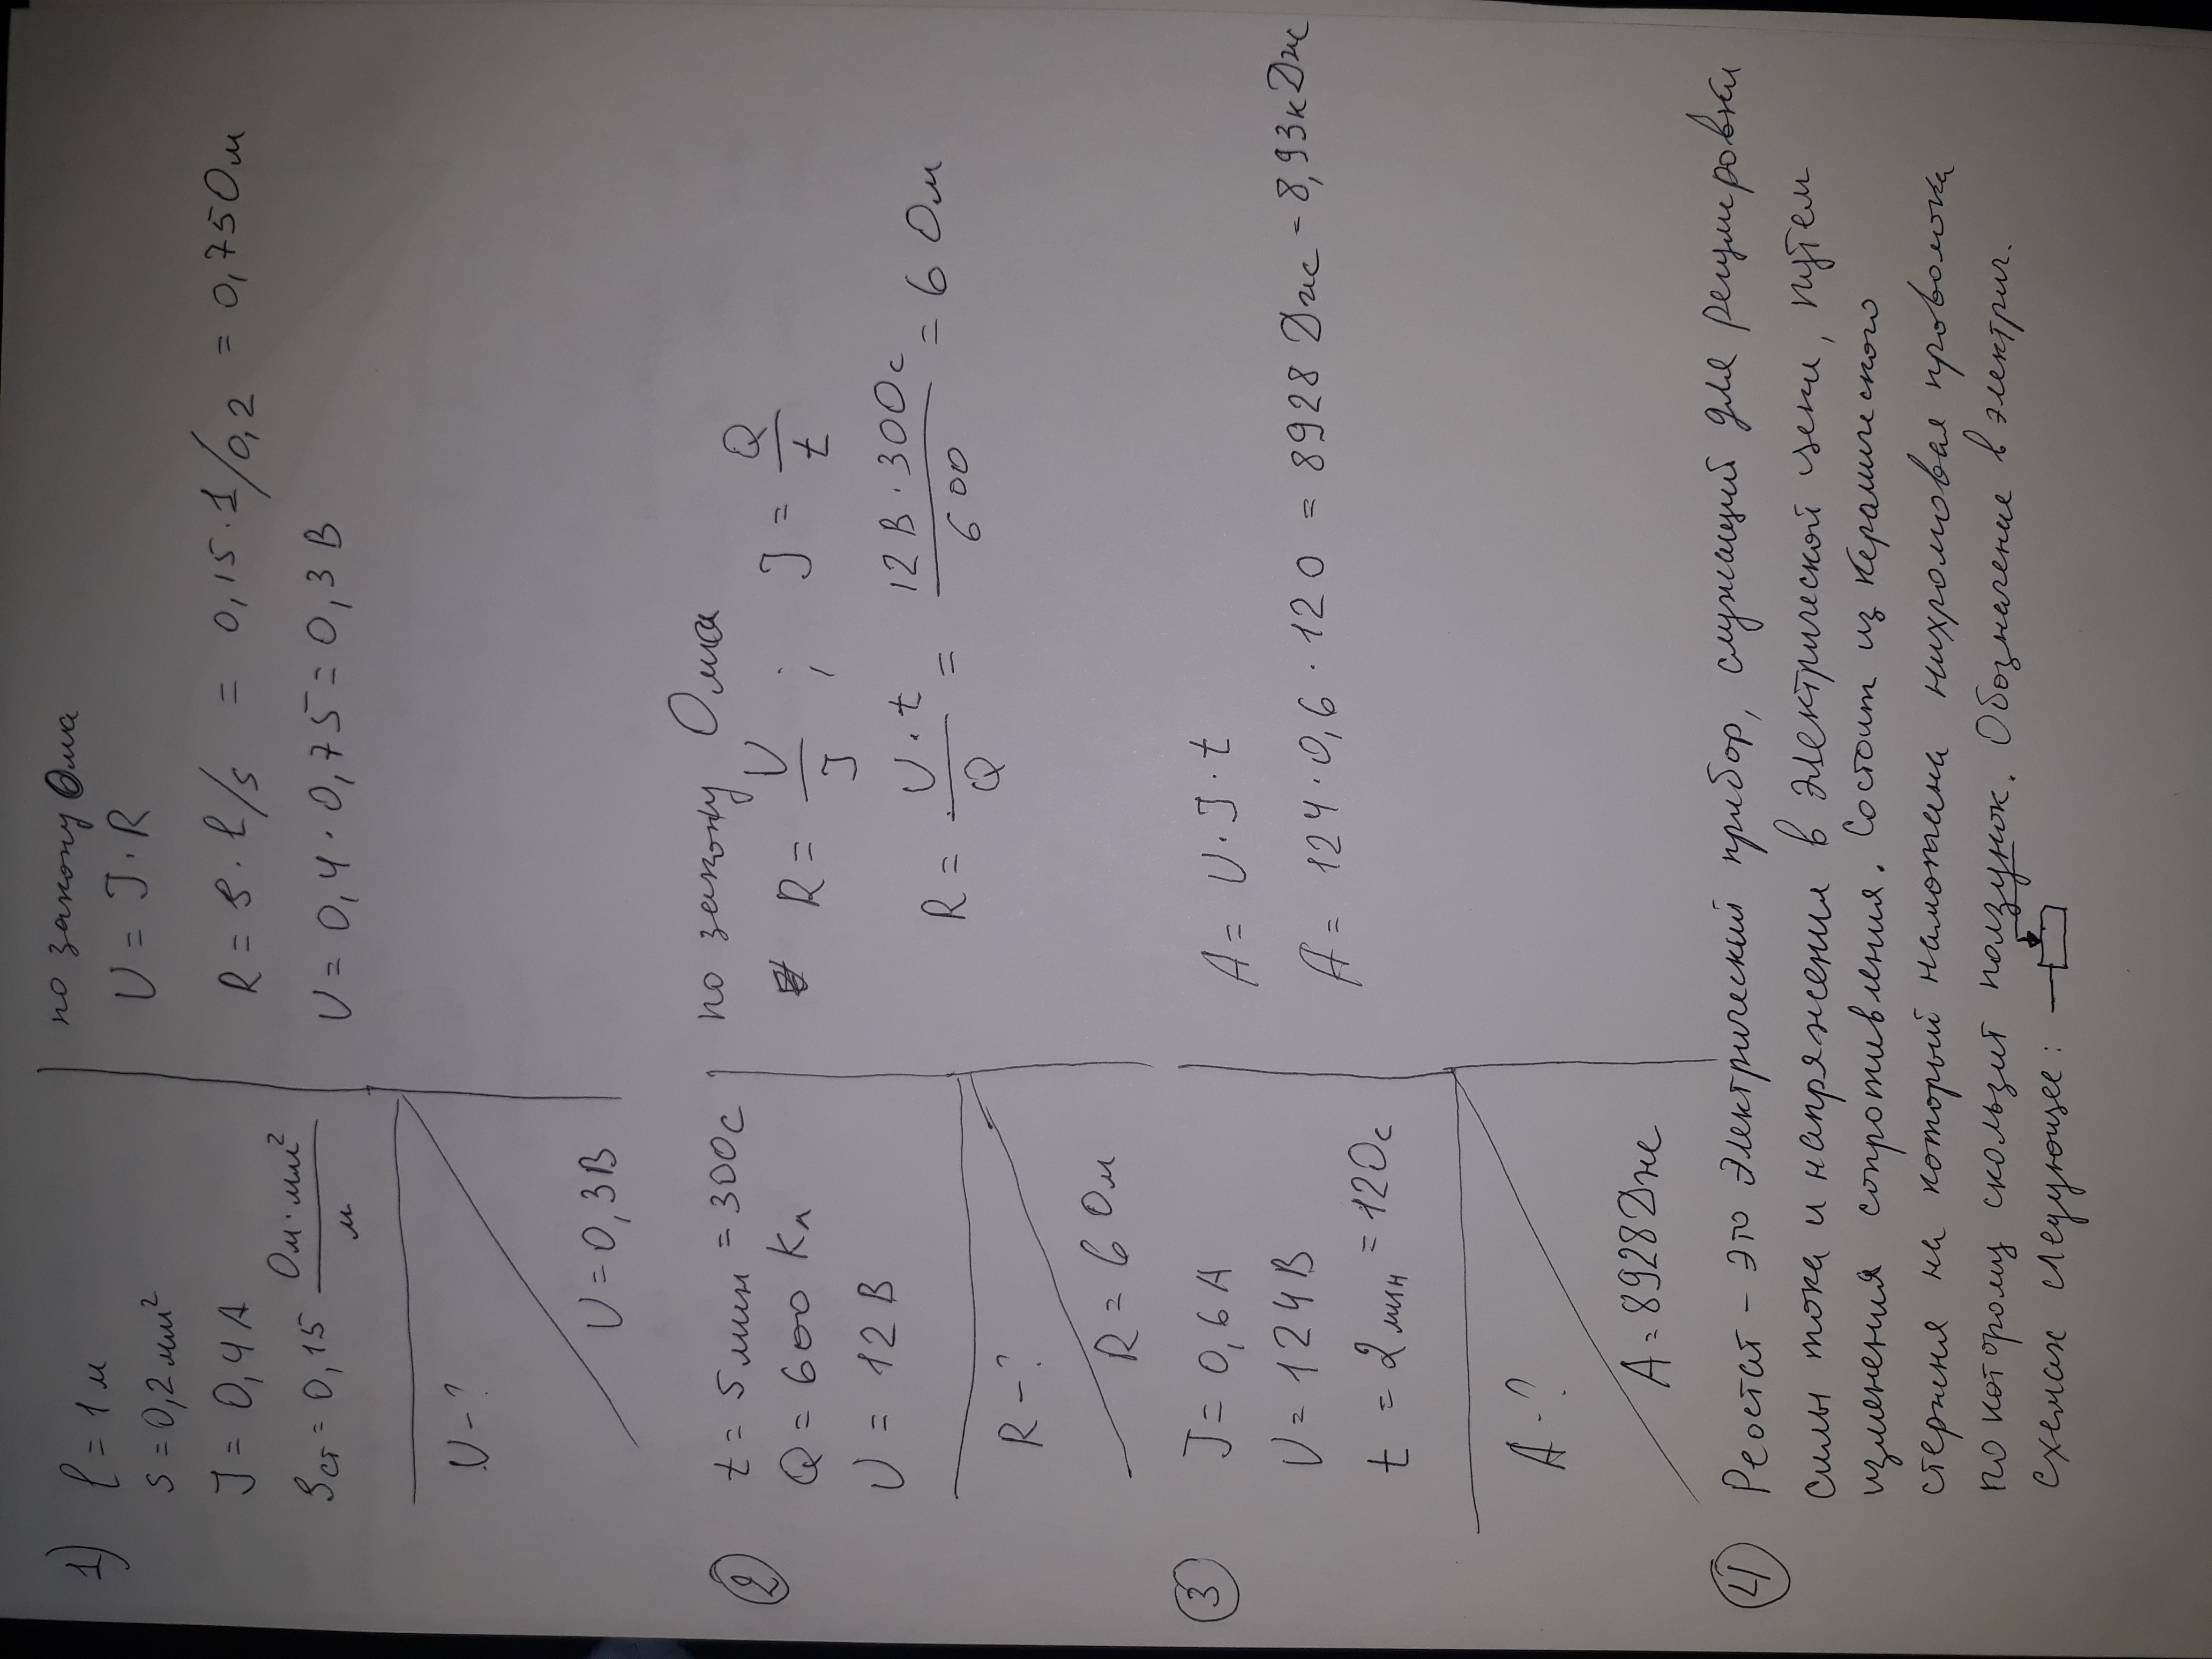 1)
l = 1м
s = 0,2мм²
J = 0,4А
ρст = 0,15 Ом·мм²/м
U - ?
U = 0,3В
по закону Ома
U = J · R
R = ρ · l/s = 0,15 · 1/0,2 = 0,75Ом
U = 0,4 · 0,75 = 0,3В
2
t = 5мин = 300с
Q = 600 Кл
U = 12В
R - ?
R = 6 Ом
по закону Ома
R = U/J ; J = Q/t
R = U·t/Q = 12В·300с/600 = 6 Ом
3
J = 0,6А
U = 124В
t = 2мин = 120с
A - ?
A = 8928Дж
A = U · J · t
A = 124 · 0,6 · 120 = 8928 Дж = 8,93кДж
4
Реостат – это Электрический прибор, служащий для регулировки
силы тока и напряжения в Электрической цепи, путем
изменения сопротивления. Состоит из керамического
стержня на который намотана нихромовая проволока
по которому скользит ползунок. Обозначение в электрич.
схемах следующее: